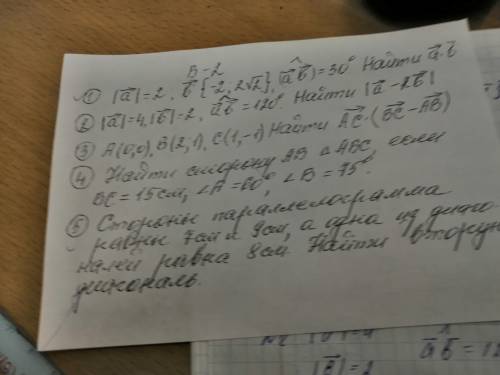 В-2
① |a⃗|=2, b⃗{-2, 2√2}, (a⃗^b⃗)=30° Найти a⃗·b⃗
② |a⃗|=4, |b⃗|=2, a⃗b⃗=120°. Найти |a⃗-2b⃗|
③ A(0,0), B(2;1), C(1,-1) Найти AC⃗·(BC⃗-AB⃗)
④ Найти сторону AB △ABC, если
BC=15см, ∠A=60°, ∠B=75°.
⑤ Стороны параллелограмма
равны 7см и 9см, а одна из диаго
налей равна 8см Найти вторую
диагональ.
|b⃗|=2
a⃗b⃗=12